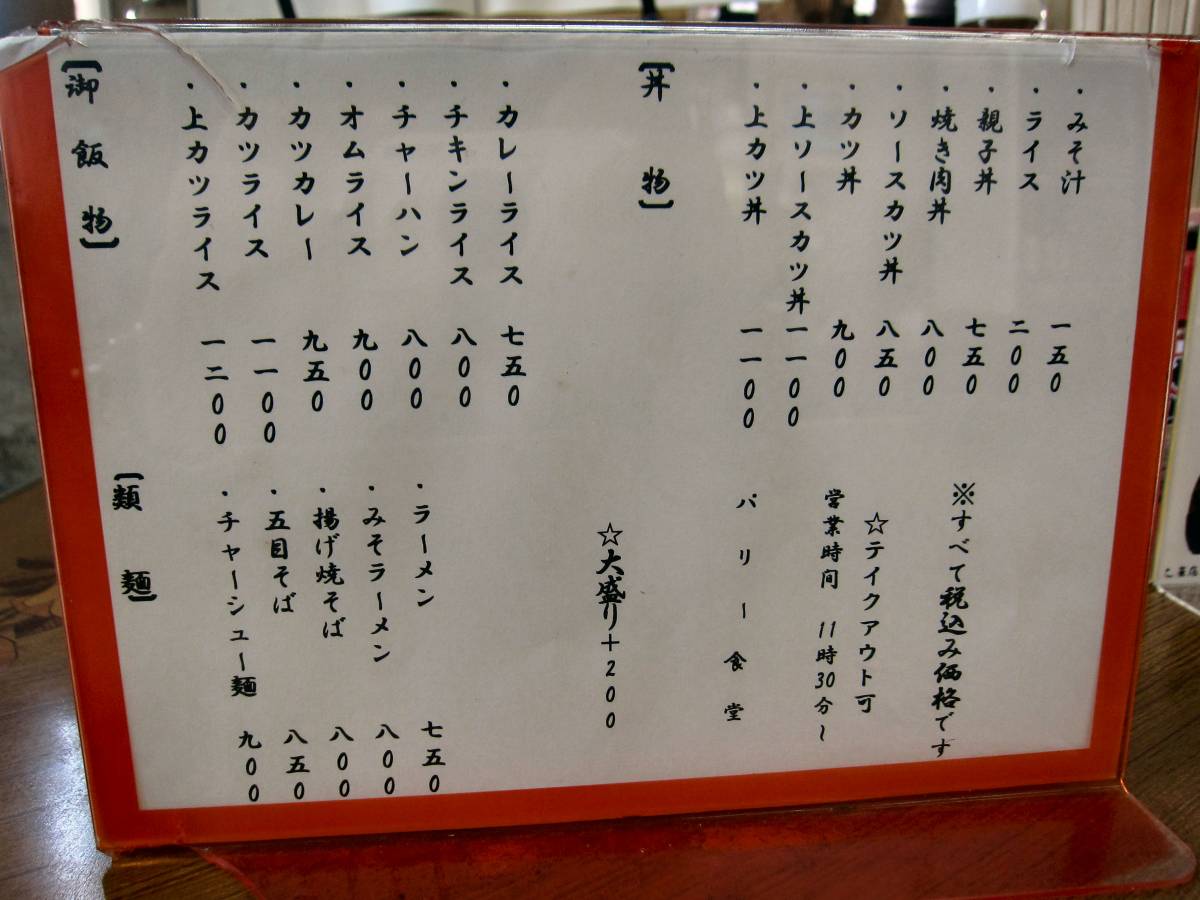 【御飯物】
・上カツライス 一二00
・カツライス 一一00
・カツカレー 九五0
・オムライス 九00
・チャーハン 八00
・チキンライス 八00
・カレーライス 七五0
【類麺】
・チャーシュー麺 九00
・五目そば 八五0
・揚げ焼そば 八00
・みそラーメン 八00
・ラーメン 七五0
☆大盛り+200
【丼物】
・上カツ丼 一一00
・上ソースカツ丼 一一00
・カツ丼 九00
・ソースカツ丼 八五0
・焼き肉丼 八00
・親子丼 七五0
・ライス 二00
・みそ汁 一五0
パリー食堂
営業時間 11時30分～
☆テイクアウト可
※すべて税込み価格です